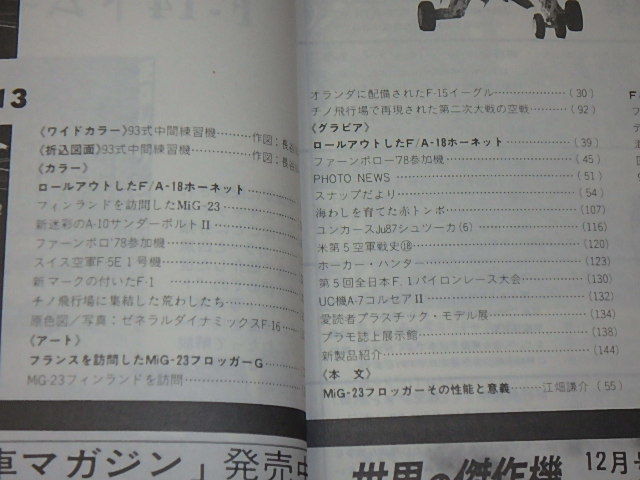 F-14
13
《ワイドカラー》93式中間練習機………作図:長谷
《折込図面》93式中間練習機…………作図:長谷
《カラー》
ロールアウトしたF/A-18ホーネット………
フィンランドを訪問したMiG-23………
新迷彩のA-10サンダーボルトⅡ………
ファーンボロ'78参加機………
スイス空軍F-5E1号機………
新マークの付いたF-1………
チノ飛行場に集結した荒わしたち………
原色図/写真:ゼネラルダイナミックスF-16………
《アート》
フランスを訪問したMiG-23フロッガーG………
MiG-23フィンランドを訪問………
車マガジン」発売中
オランダに配備されたF-15イーグル………(30)
チノ飛行場で再現された第二次大戦の空戦………(92)
《グラビア》
ロールアウトしたF/A-18ホーネット………(39)
ファーンボロー'78参加機………(45)
PHOTO NEWS………(51)
スナップだより………(54)
海わしを育てた赤トンボ………(107)
ユンカースJu87シュツーカ(6)………(116)
米第5空軍戦史⑱………(120)
ホーカー・ハンター………(123)
第5回全日本F.1パイロンレース大会………(130)
UC機A-7コルセアⅡ………(132)
愛読者プラスチック・モデル展………(134)
プラモ誌上展示館………(138)
新製品紹介………(144)
《本 文》
MiG-23フロッガーその性能と意義………江畑謙介(55)
世界の傑作機 12月号